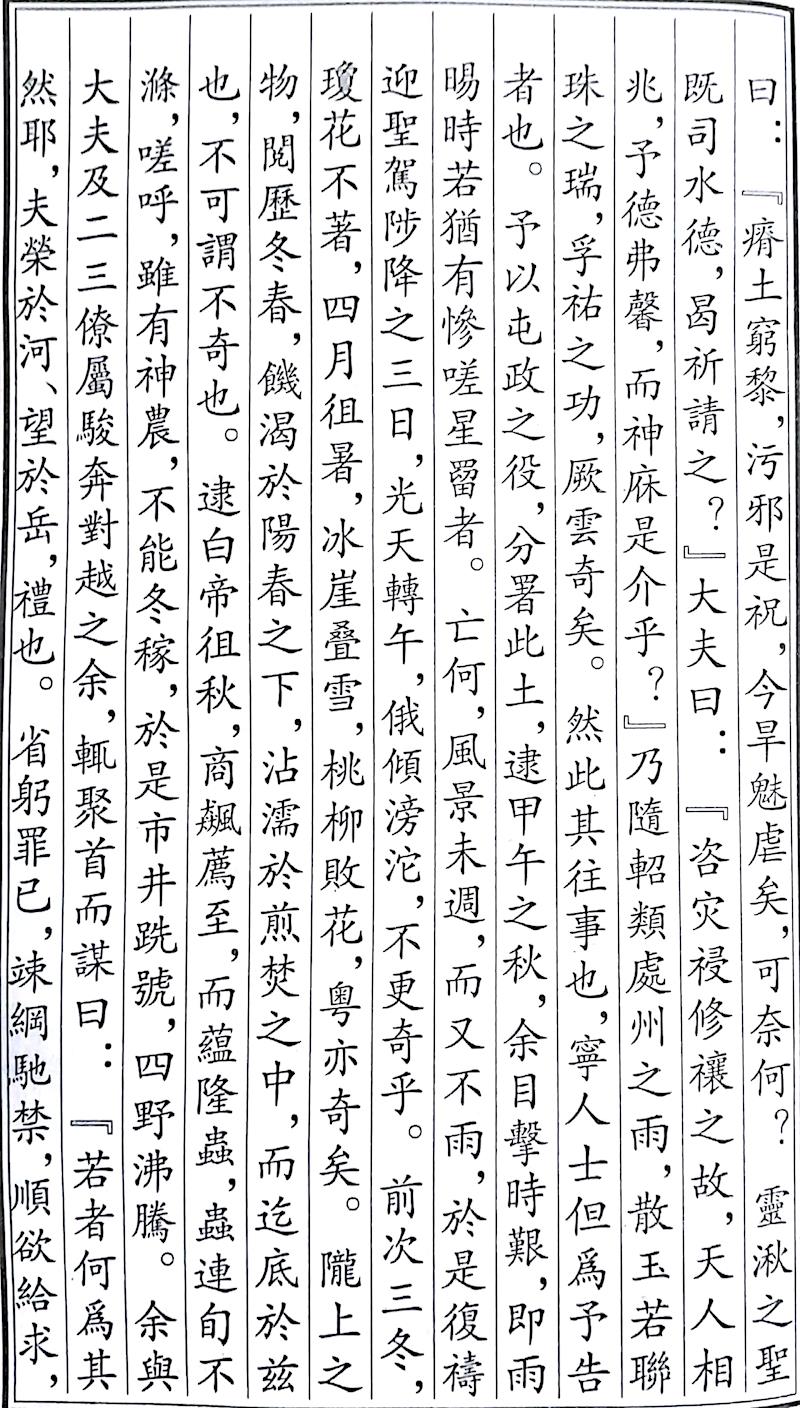 曰：『瘠土窮黎，污邪是祝，今旱魃虐矣，可奈何？靈湫之聖
既司水德，曷祈請之？』大夫曰：『咨灾祲修禳之故，天人相
兆，予德弗馨，而神庥是介乎？』乃隨軺類處州之雨，散玉若聯
珠之瑞，孚祐之功，厥雲奇矣。然此其往事也，寧人士但爲予告
者也。予以屯政之役，分署此土，逮甲午之秋，余目擊時艱，即雨
暘時若猶有慘嗟星罶者。亡何，風景未週，而又不雨，於是復禱
迎聖駕陟降之三日，光天轉午，俄傾滂沱，不更奇乎。前次三冬，
瓊花不著，四月徂暑，冰崖叠雪，桃柳敗花，粵亦奇矣。隴上之
物，閱歷冬春，饑渴於陽春之下，沾濡於煎焚之中，而迄底於兹
也，不可謂不奇也。逮白帝徂秋，商飆薦至，而蘊隆蟲，蟲連旬不
滌，嗟呼，雖有神農，不能冬稼，於是市井跣號，四野沸騰。余與
大夫及二三僚屬駿奔對越之余，輒聚首而謀曰：『若者何爲其
然耶，夫榮於河、望於岳，禮也。省躬罪已，竦綱馳禁，順欲給求，